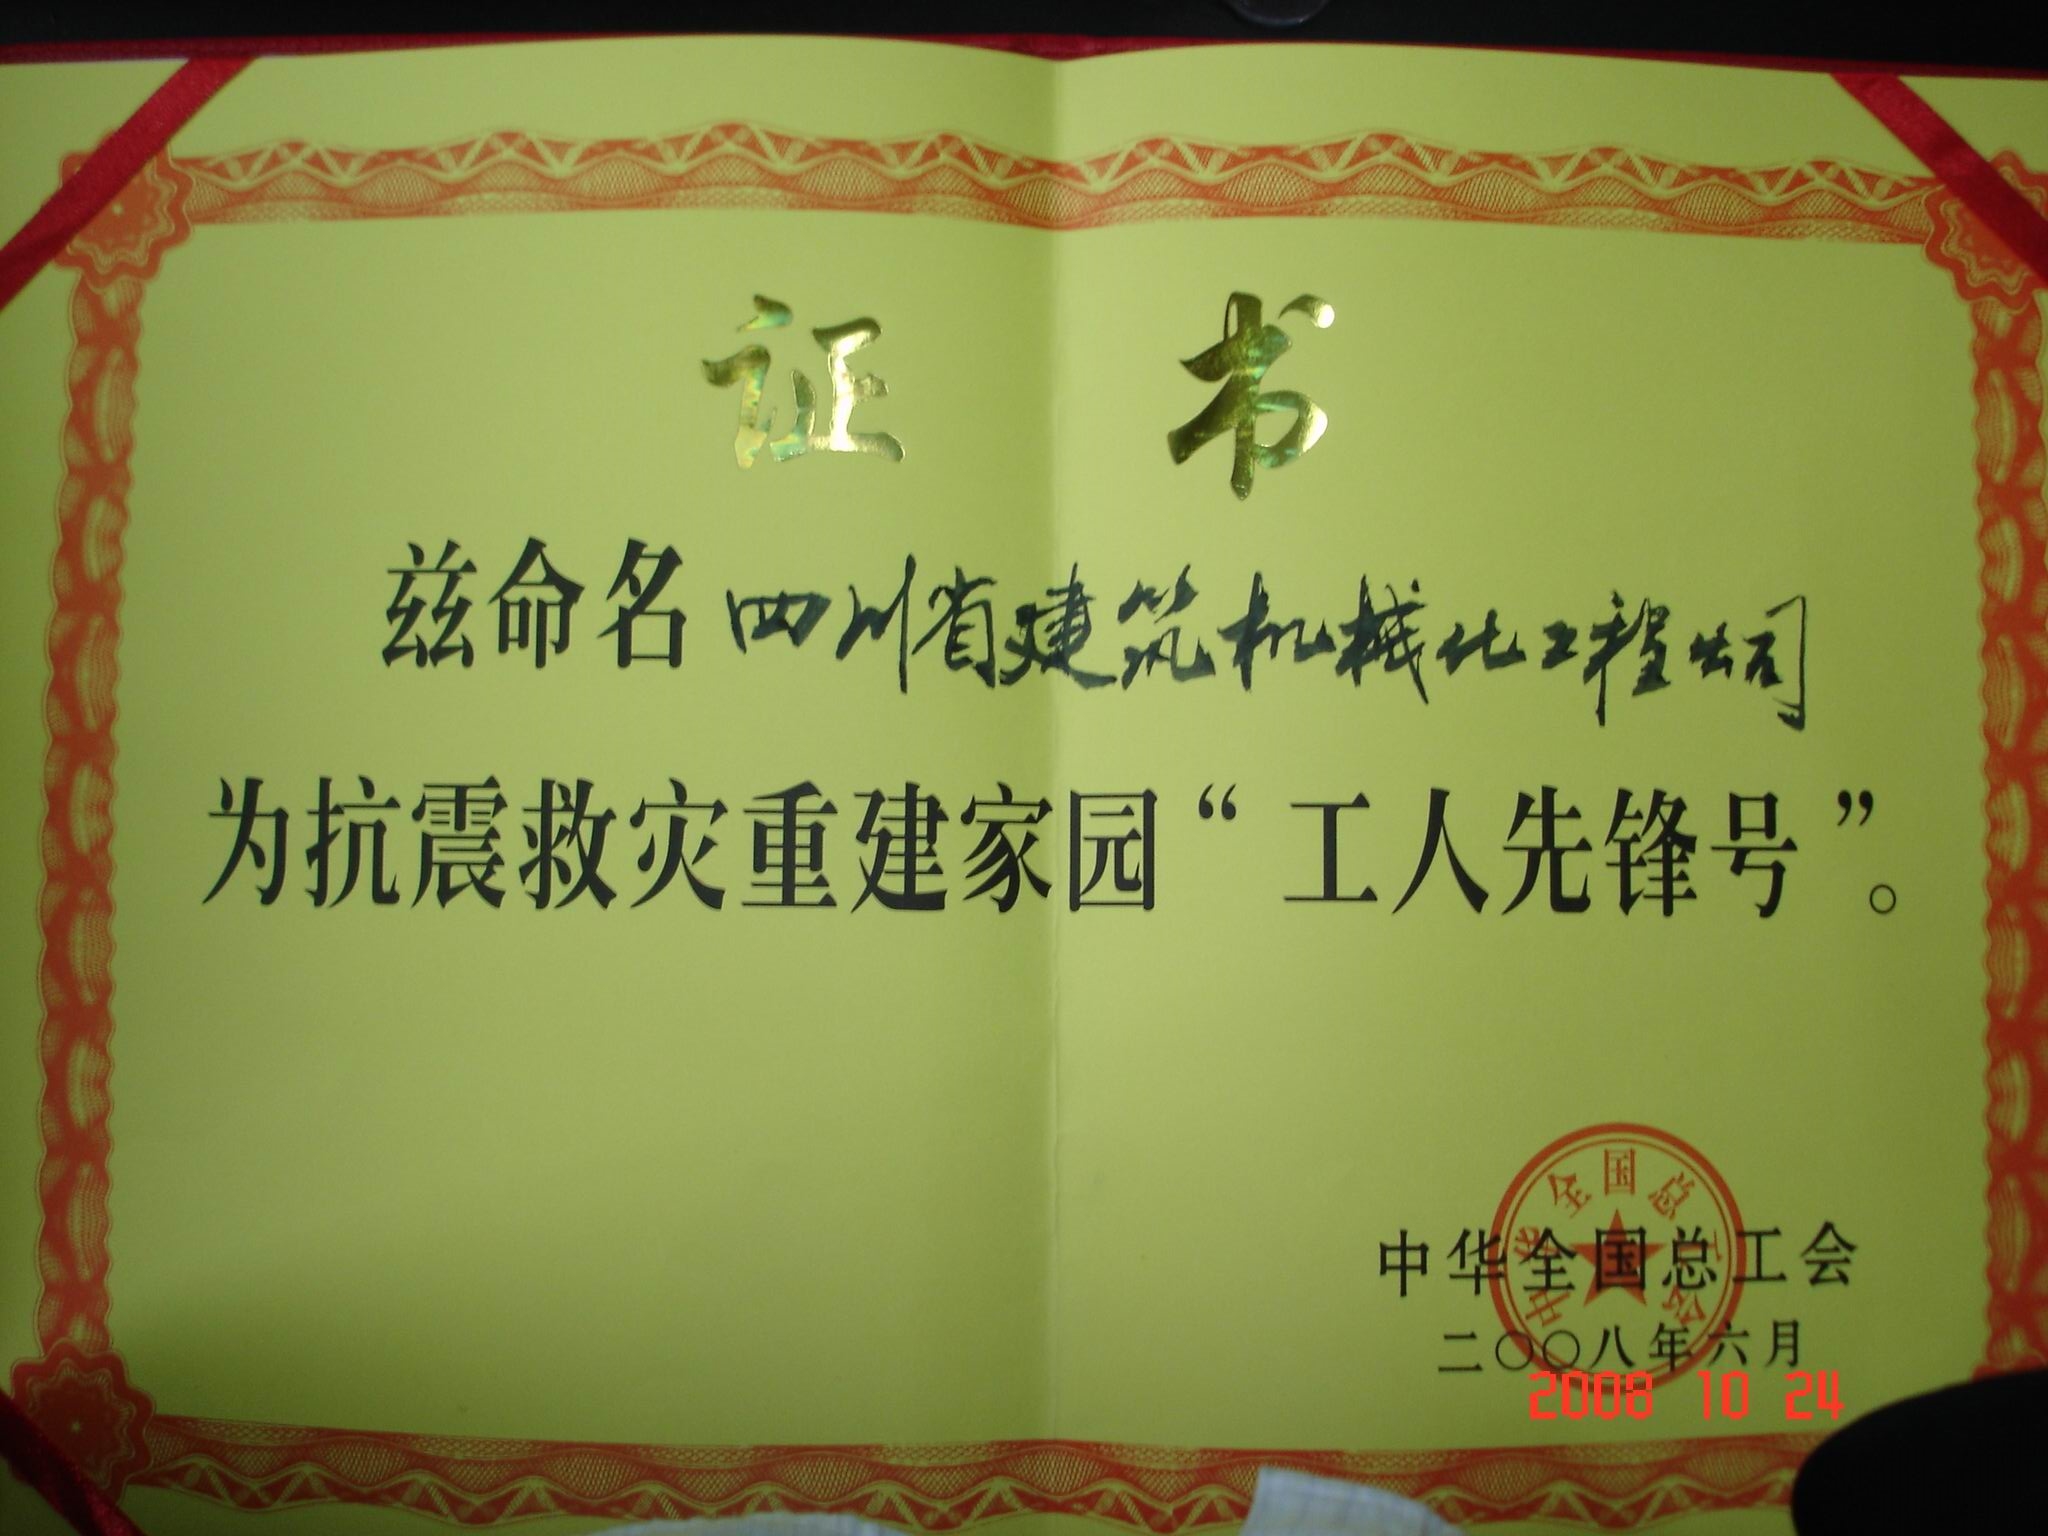 证 书
兹命名四川省建筑机械化工程公司
为抗震救灾重建家园“工人先锋号”。
中华全国总工会
中华全国总工会
二〇〇八年六月
2008 10 24